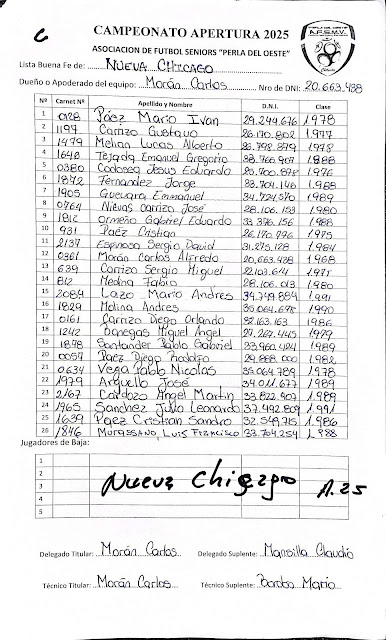 C
CAMPEONATO APERTURA 2025
ASOCIACION DE FUTBOL SENIORS "PERLA DEL OESTE"
A.F.S.M.V.
Lista Buena Fe de: NUEVA CHICAGO
Dueño o Apoderado del equipo: Morán Carlos Nro de DNI: 20.663.438
Nº Carnet Nº Apellido y Nombre D.N.I. Clase
1 0128 Páez Mario Ivan 29.244.676 1978
2 1197 Carrizo Gustavo 26.170.802 1977
3 1479 Molina Lucas Alberto 26.798.879 1978
4 1640 Tejada Emanuel Gregorio 33.766.969 1988
5 0380 Cadosea Jesus Eduardo 25.700.878 1976
6 1872 Fernandez Jorge 33.704.146 1988
7 1905 Guevara Emmanuel 34.724.570 1989
8 0764 Nievas Carrizo José 28.106.153 1980
9 1812 Ormeño Gabriel Eduardo 33.376.156 1988
10 931 Páez Cristian 26.170.776 1975
11 2137 Espinosa Sergio David 31.275.128 1984
12 0361 Morán Carlos Alfredo 20.663.438 1968
13 639 Carrizo Sergio Miguel 22.103.614 1971
14 812 Medina Fabio 28.106.013 1980
15 2089 Lazo Mario Andres 34.749.884 1991
16 1829 Molina Andres 35.064.698 1990
17 0161 Carrizo Diego Orlando 32.163.163 1986
18 1242 Banegas Miguel Angel 27.267.445 1979
19 1898 Santander Pablo Gabriel 33.960.424 1989
20 0057 Paez Diego Rodolfo 29.888.000 1982
21 0634 Vega Pablo Nicolas 35.064.789 1978
22 1979 Arguello José 34.011.677 1989
23 2167 Cardozo Angel Martin 33.822.907 1989
24 1965 Sanchez Julio Leonardo 37.492.809 1991
25 1639 Páez Cristian Sandro 32.549.715 1986
26 1846 Murassano, Luis Francisco 33.704.254 1988
Jugadores de Baja:
1
2
3
4
5
Nueva Chicago A.25
Delegado Titular: Morán Carlos Delegado Suplente: Mansilla Claudio
Técnico Titular: Morán Carlos Técnico Suplente: Mario